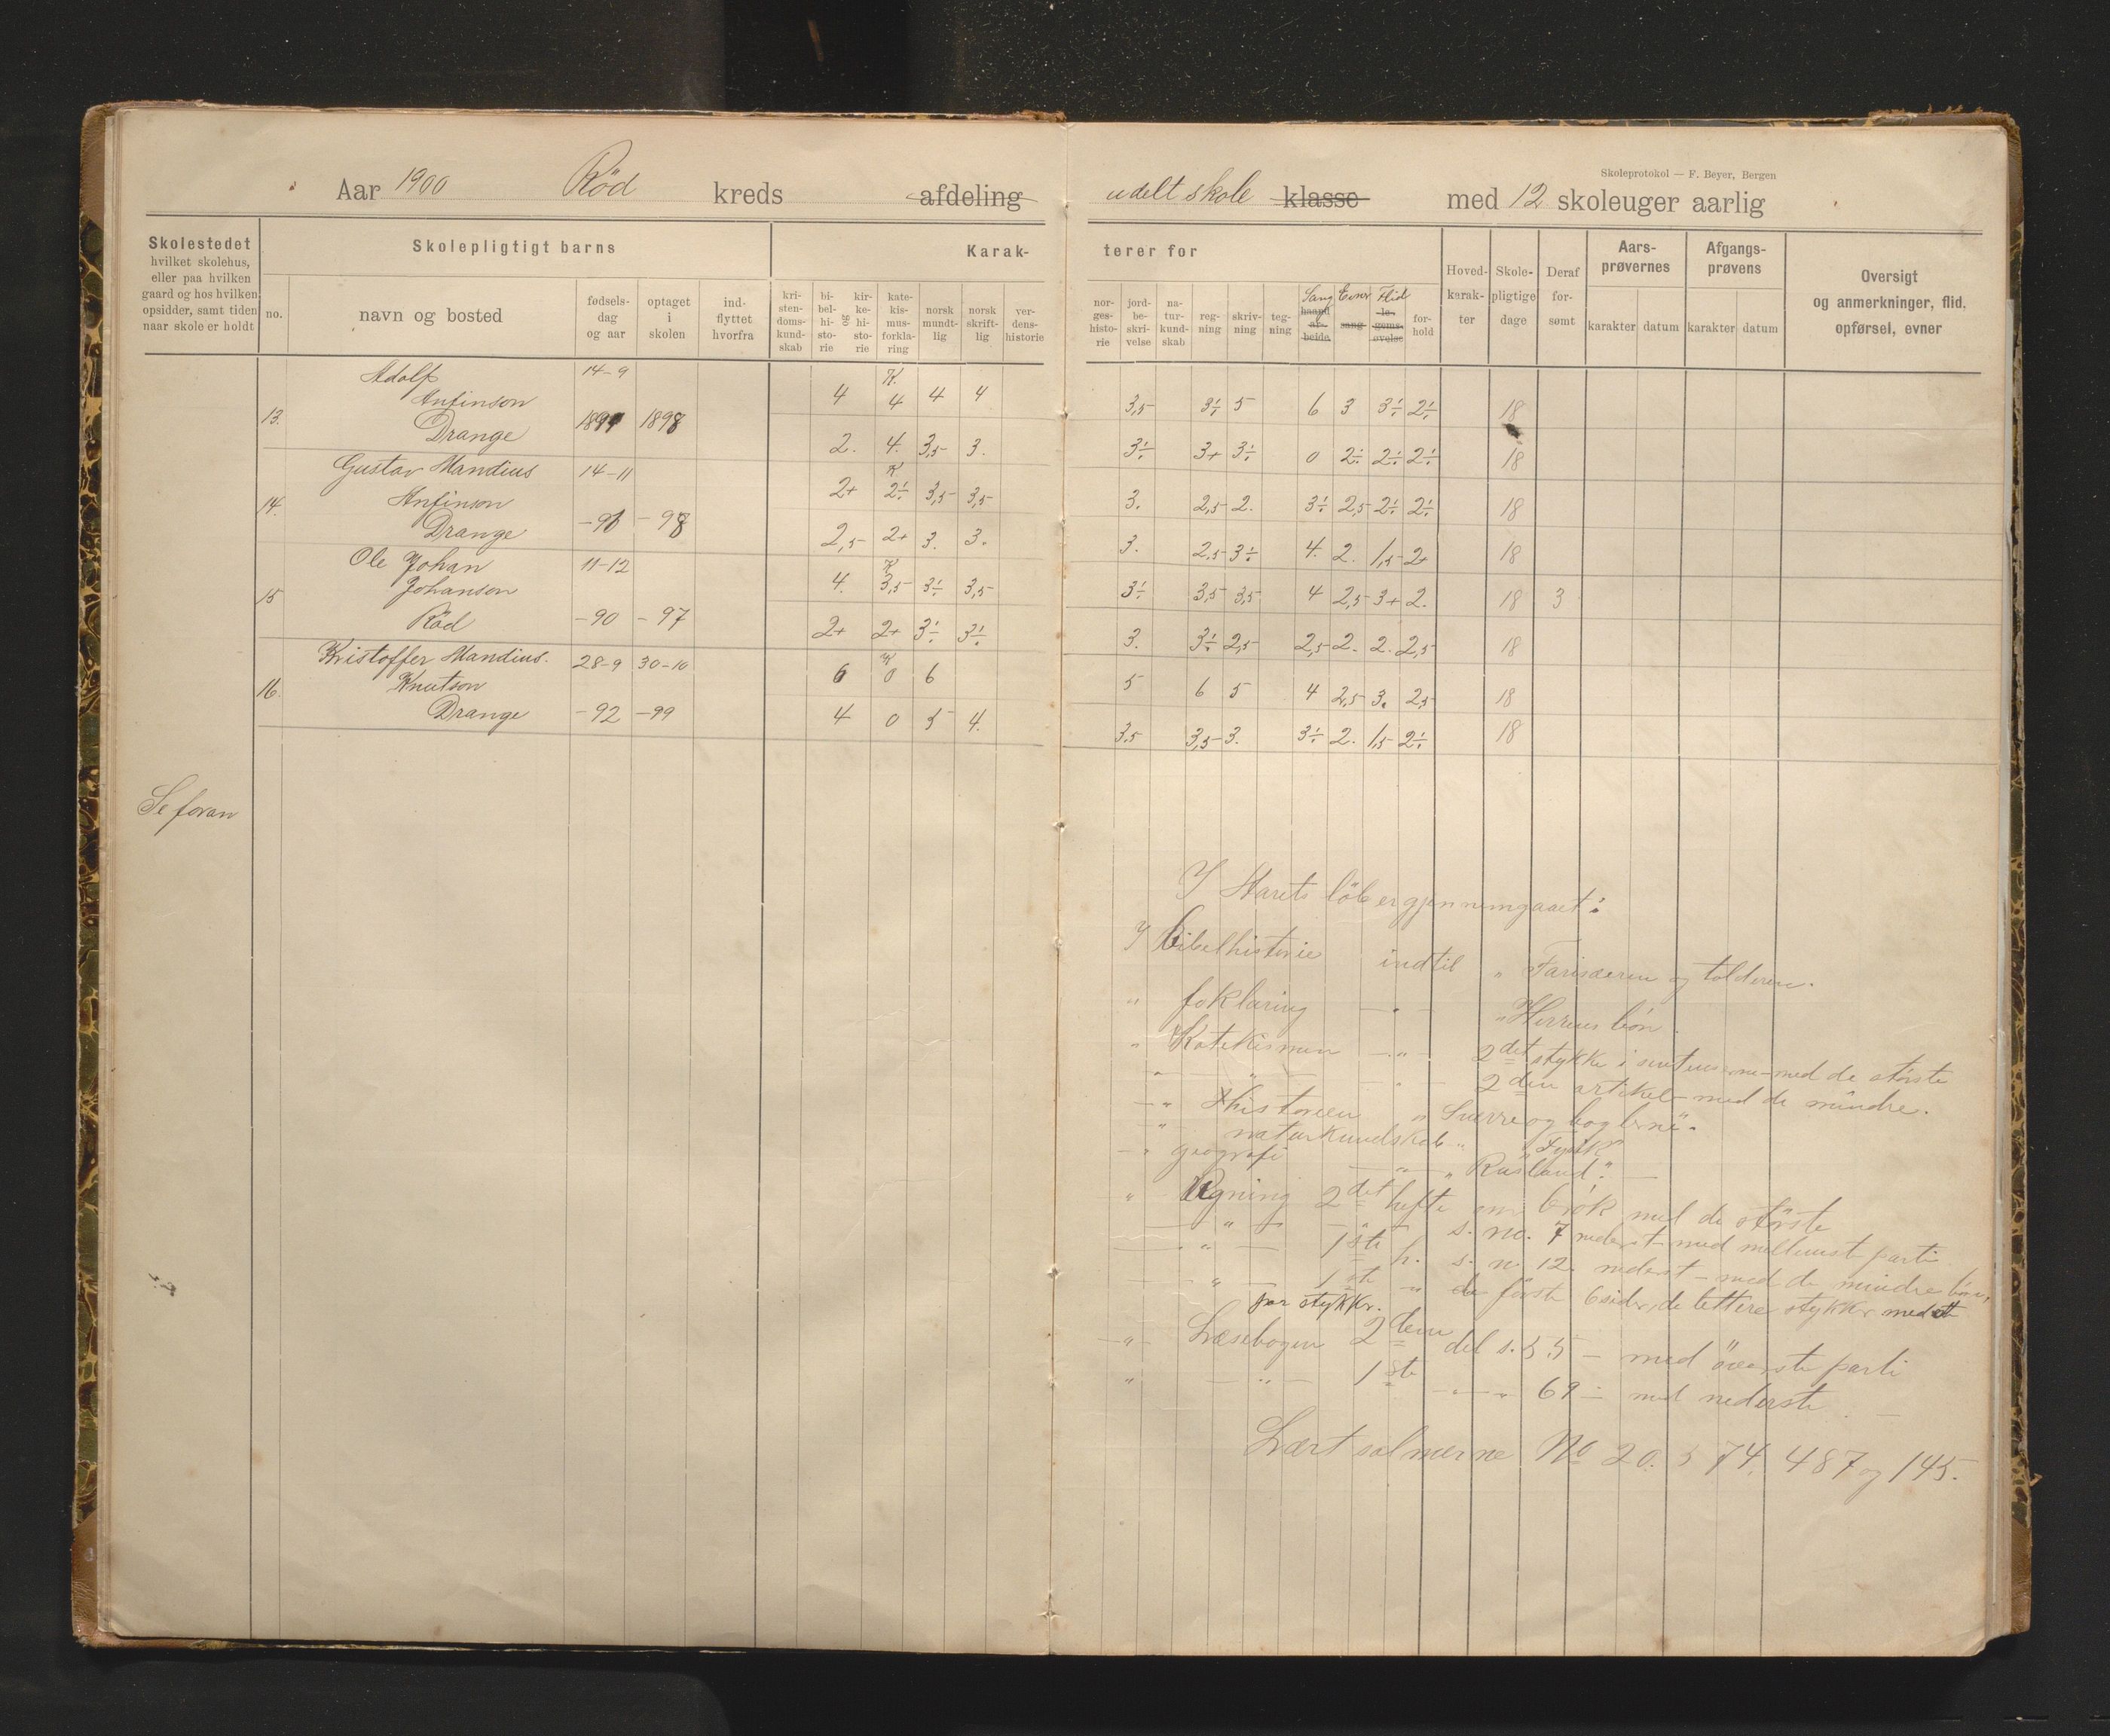 Skoleprotokol — F. Beyer, Bergen
Aar 1900 Röd kreds afdeling udelt skole klasse med 12 skoleuger aarlig
Skolestedet
hvilket skolehus,
eller paa hvilken
gaard og hos hvilken
opsidder, samt tiden
naar skole er holdt
Skolepligtigt barns
no.
navn og bosted
fødsels-
dag
og aar
optaget
i
skolen
ind-
flyttet
hvorfra
Karak-
kri-
sten-
doms-
kund-
skab
bi-
bel-
hi-
sto-
rie
og
kir-
ke-
hi-
sto-
rie
kate-
kis-
mus-
forkla-
ring
norsk
mundt-
lig
norsk
skrift-
lig
ver-
dens-
historie
terer for
nor-
ges-
histo-
rie
jord-
be-
skri-
velse
na-
tur-
kund-
skab
reg-
ning
skriv-
ning
teg-
ning
Sang Evner Flid
haand
ar-
beide
sang
le-
gems-
øvelse
for-
hold
Hoved-
karak-
ter
Skole-
pligtige
dage
Deraf
for-
sømt
Aars-
prøvernes
karakter datum
Afgangs-
prøvens
karakter datum
Oversigt
og anmerkninger, flid,
opførsel, evner
Adolf 14-9 K.
Anfinson 4 4 4 4 3,5 3÷ 5 6 3 3÷ 2÷ 18
13. Drange 1898
2. 4. 3,5 3. 3÷ 3+ 3÷ 0 2÷ 2÷ 2÷ 18
Gustav Mandius 14-11 K
Anfinson 2+ 2÷ 3,5 3,5 3. 2,5 2. 3÷ 2,5 2÷ 2÷ 18
14. Drange - 98
2,5 2+ 3. 3. 3. 2,5 3÷ 4. 2. 1,5 2+ 18
Ole Johan 11-12 K
Johanson 4. 3,5 3÷ 3,5 3÷ 3,5 3,5 4 2,5 3+ 2. 18 3
15 Röd -90 - 97
2+ 2+ 3÷ 3÷ 3. 3÷ 2,5 2,5 2. 2. 2,5 18
Kristoffer Mandius. 28-9 30-10 K
16. Knutson 6 0 6 5 6 5 4 2,5 3. 2,5 18
Drange -92 -99 4 0 5 4. 3,5 3,5 3. 3÷ 2. 1,5 2÷ 18
Se foran
I Aarets löb er gjennemgaaet:
I Bibelhistorie indtil „ Farisæeren og tolderen.
" foklaring — " — „ Herrens bön.
" Katekismen — " — 2det stykke i med de störste
" — " — 2den artikel med de mindre.
— " historien " Sverre og baglerne".
" naturkundskab " „ Fysik
— " geografi — " — „ Rusland". —
" Regning 2det hefte om brök med de störste
— " — s. no. 7 nederst med mellemste parti
— " — 1ste h. s. n. 12. nederst — med de mindre börn,
— " — 1ste " de förste 6 sider, de lettere stykker med et
par stykker.
— " — Læsebogen 2den del s. 55 — med överste parti
" — " — 1ste — " — 69 — med nederste —
Lært salmerne No 20. 574. 487 og 145.